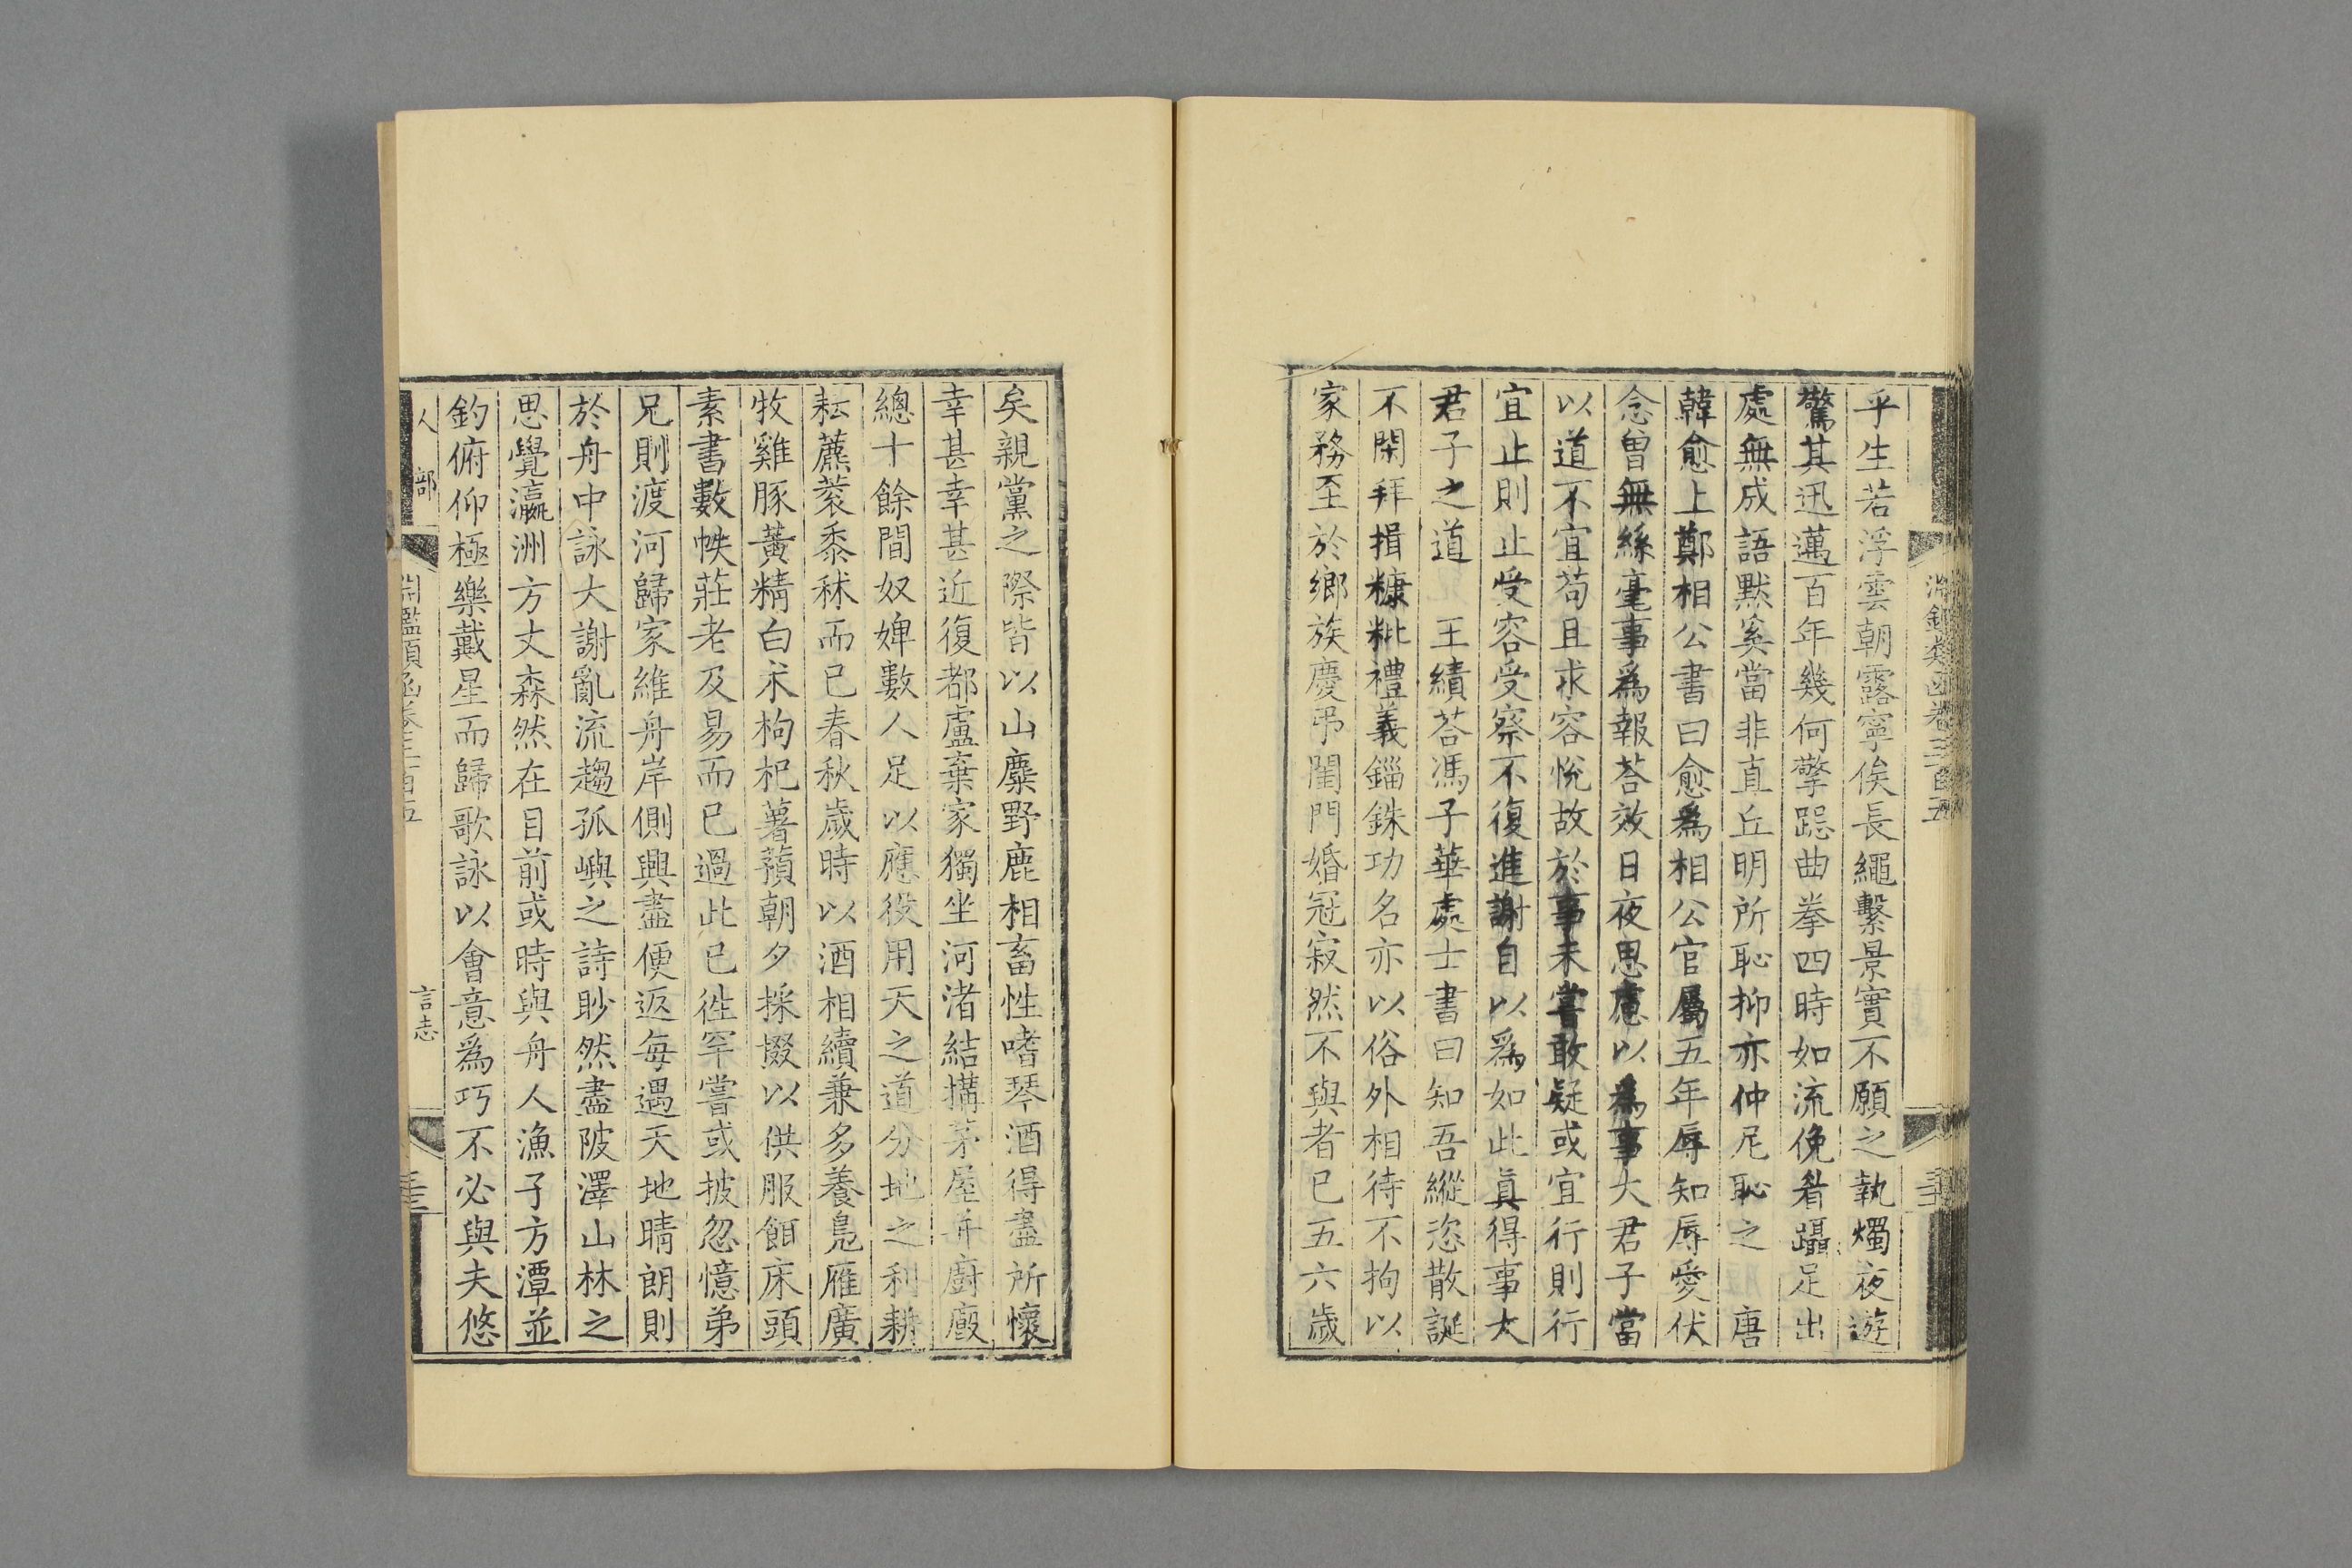 乎生若浮雲朝露寧俟長繩繫景實不願之執燭夜遊
驚其迅邁百年幾何擎跽曲拳四時如流俛眉躡足出
處無成語默奚當非直丘明所恥抑亦仲尼恥之　唐
韓愈上鄭相公書曰愈爲相公官屬五年辱知辱愛伏
念曾無絲毫事爲報荅效日夜思慮以爲事大君子當
以道不宜苟且求容悅故於事未嘗敢疑或宜行則行
宜止則止受容受察不復進謝自以爲如此真得事大
君子之道　王績荅馮子華處士書曰知吾縱恣散誕
不閑拜揖糠粃禮義錙銖功名亦以俗外相待不拘以
家務至於鄉族慶弔閨門婚冠寂然不與者已五六歲
矣親黨之際皆以山麋野鹿相畜性嗜琴酒得盡所懷
幸甚幸甚近復都盧棄家獨坐河渚結搆茅屋并廚廄
總十餘間奴婢數人足以應役用天之道分地之利耕
耘藨蔉黍秫而已春秋歲時以酒相續兼多養鳧雁廣
牧雞豚黃精白朮枸杞薯蕷朝夕採掇以供服餌床頭
素書數帙莊老及易而已過此已徃罕嘗或披忽憶弟
兄則渡河歸家維舟岸側興盡便返每遇天地晴朗則
於舟中詠大謝亂流趨孤嶼之詩眇然盡陂澤山林之
思覺瀛洲方丈森然在目前或時與舟人漁子方潭並
釣俯仰極樂戴星而歸歌詠以會意爲巧不必與夫悠
人　部　淵鑑類函卷三百五　言志